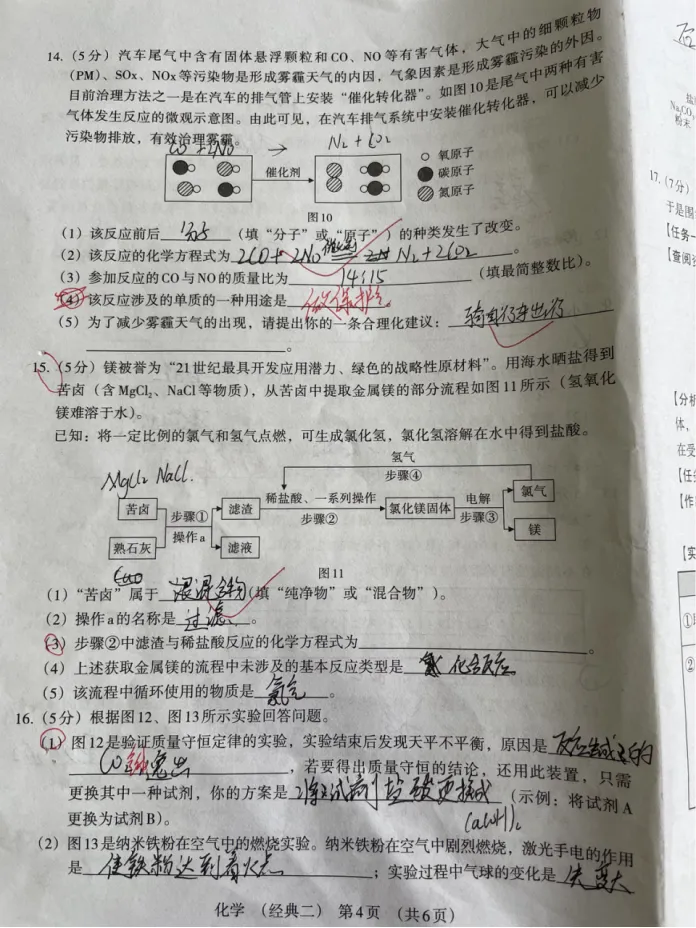 14.（5分）汽车尾气中含有固体悬浮颗粒和CO、NO等有害气体，大气中的细颗粒物
（PM）、SOx、NOx等污染物是形成雾霾天气的内因，气象因素是形成雾霾污染的外因。
目前治理方法之一是在汽车的排气管上安装“催化转化器”。如图10是尾气中两种有害
气体发生反应的微观示意图。由此可见，在汽车排气系统中安装催化转化器，可以减少
污染物排放，有效治理雾霾。
CO + 2NO → N₂ + CO₂
催化剂
氧原子
碳原子
氮原子
图10
（1）该反应前后 分子 （填“分子”或“原子”）的种类发生了改变。
（2）该反应的化学方程式为 2CO + 2NO 催化剂 N₂ + 2CO₂ 。
（3）参加反应的CO与NO的质量比为 14:15 （填最简整数比）。
（4）该反应涉及的单质的一种用途是 做保护气
（5）为了减少雾霾天气的出现，请提出你的一条合理化建议： 骑自行车出行
。
15.（5分）镁被誉为“21世纪最具开发应用潜力、绿色的战略性原材料”。用海水晒盐得到
苦卤（含MgCl₂、NaCl等物质），从苦卤中提取金属镁的部分流程如图11所示（氢氧化
镁难溶于水）。
已知：将一定比例的氯气和氢气点燃，可生成氯化氢，氯化氢溶解在水中得到盐酸。
氢气
步骤④
MgCl₂ NaCl.
苦卤
熟石灰
步骤①
操作a
滤渣
滤液
稀盐酸、一系列操作
步骤②
氯化镁固体
电解
步骤③
氯气
镁
图11
（1）“苦卤”属于 混合物 （填“纯净物”或“混合物”）。
（2）操作a的名称是 过滤 。
（3）步骤②中滤渣与稀盐酸反应的化学方程式为 。
（4）上述获取金属镁的流程中未涉及的基本反应类型是 化合反应
（5）该流程中循环使用的物质是 氯气 。
16.（5分）根据图12、图13所示实验回答问题。
（1）图12是验证质量守恒定律的实验，实验结束后发现天平不平衡，原因是 反应生成的
CO 逸出 ，若要得出质量守恒的结论，还用此装置，只需
更换其中一种试剂，你的方案是 将试剂盐酸更换成 （示例：将试剂A
更换为试剂B）。
（2）图13是纳米铁粉在空气中的燃烧实验。纳米铁粉在空气中剧烈燃烧，激光手电的作用
是 使铁粉达到着火点 ；实验过程中气球的变化是 先变大
化学 （经典二） 第4页 （共6页）
17.（7分）
于是围
【任务一
【查阅资
【分析
体，
在受
【任务
【作
【实
①
②
盐
Na₂CO₃
粉末